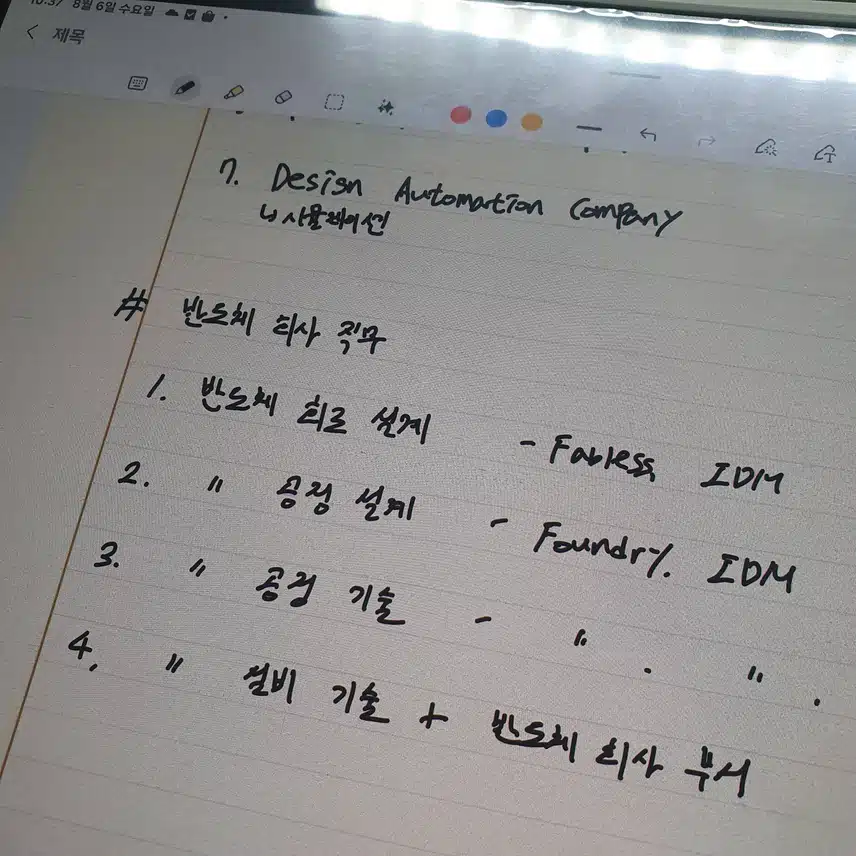 10:37 8월 6일 수요일
< 제목
7. Design Automation Company
ㄴ시뮬레이션
# 반도체 회사 직무
1. 반도체 회로 설계 - Fabless, IDM
2. 〃 공정 설계 - Foundry, IDM
3. 〃 공정 기술 - 〃 . 〃 .
4. 〃 설비 기술 + 반도체 회사 부서